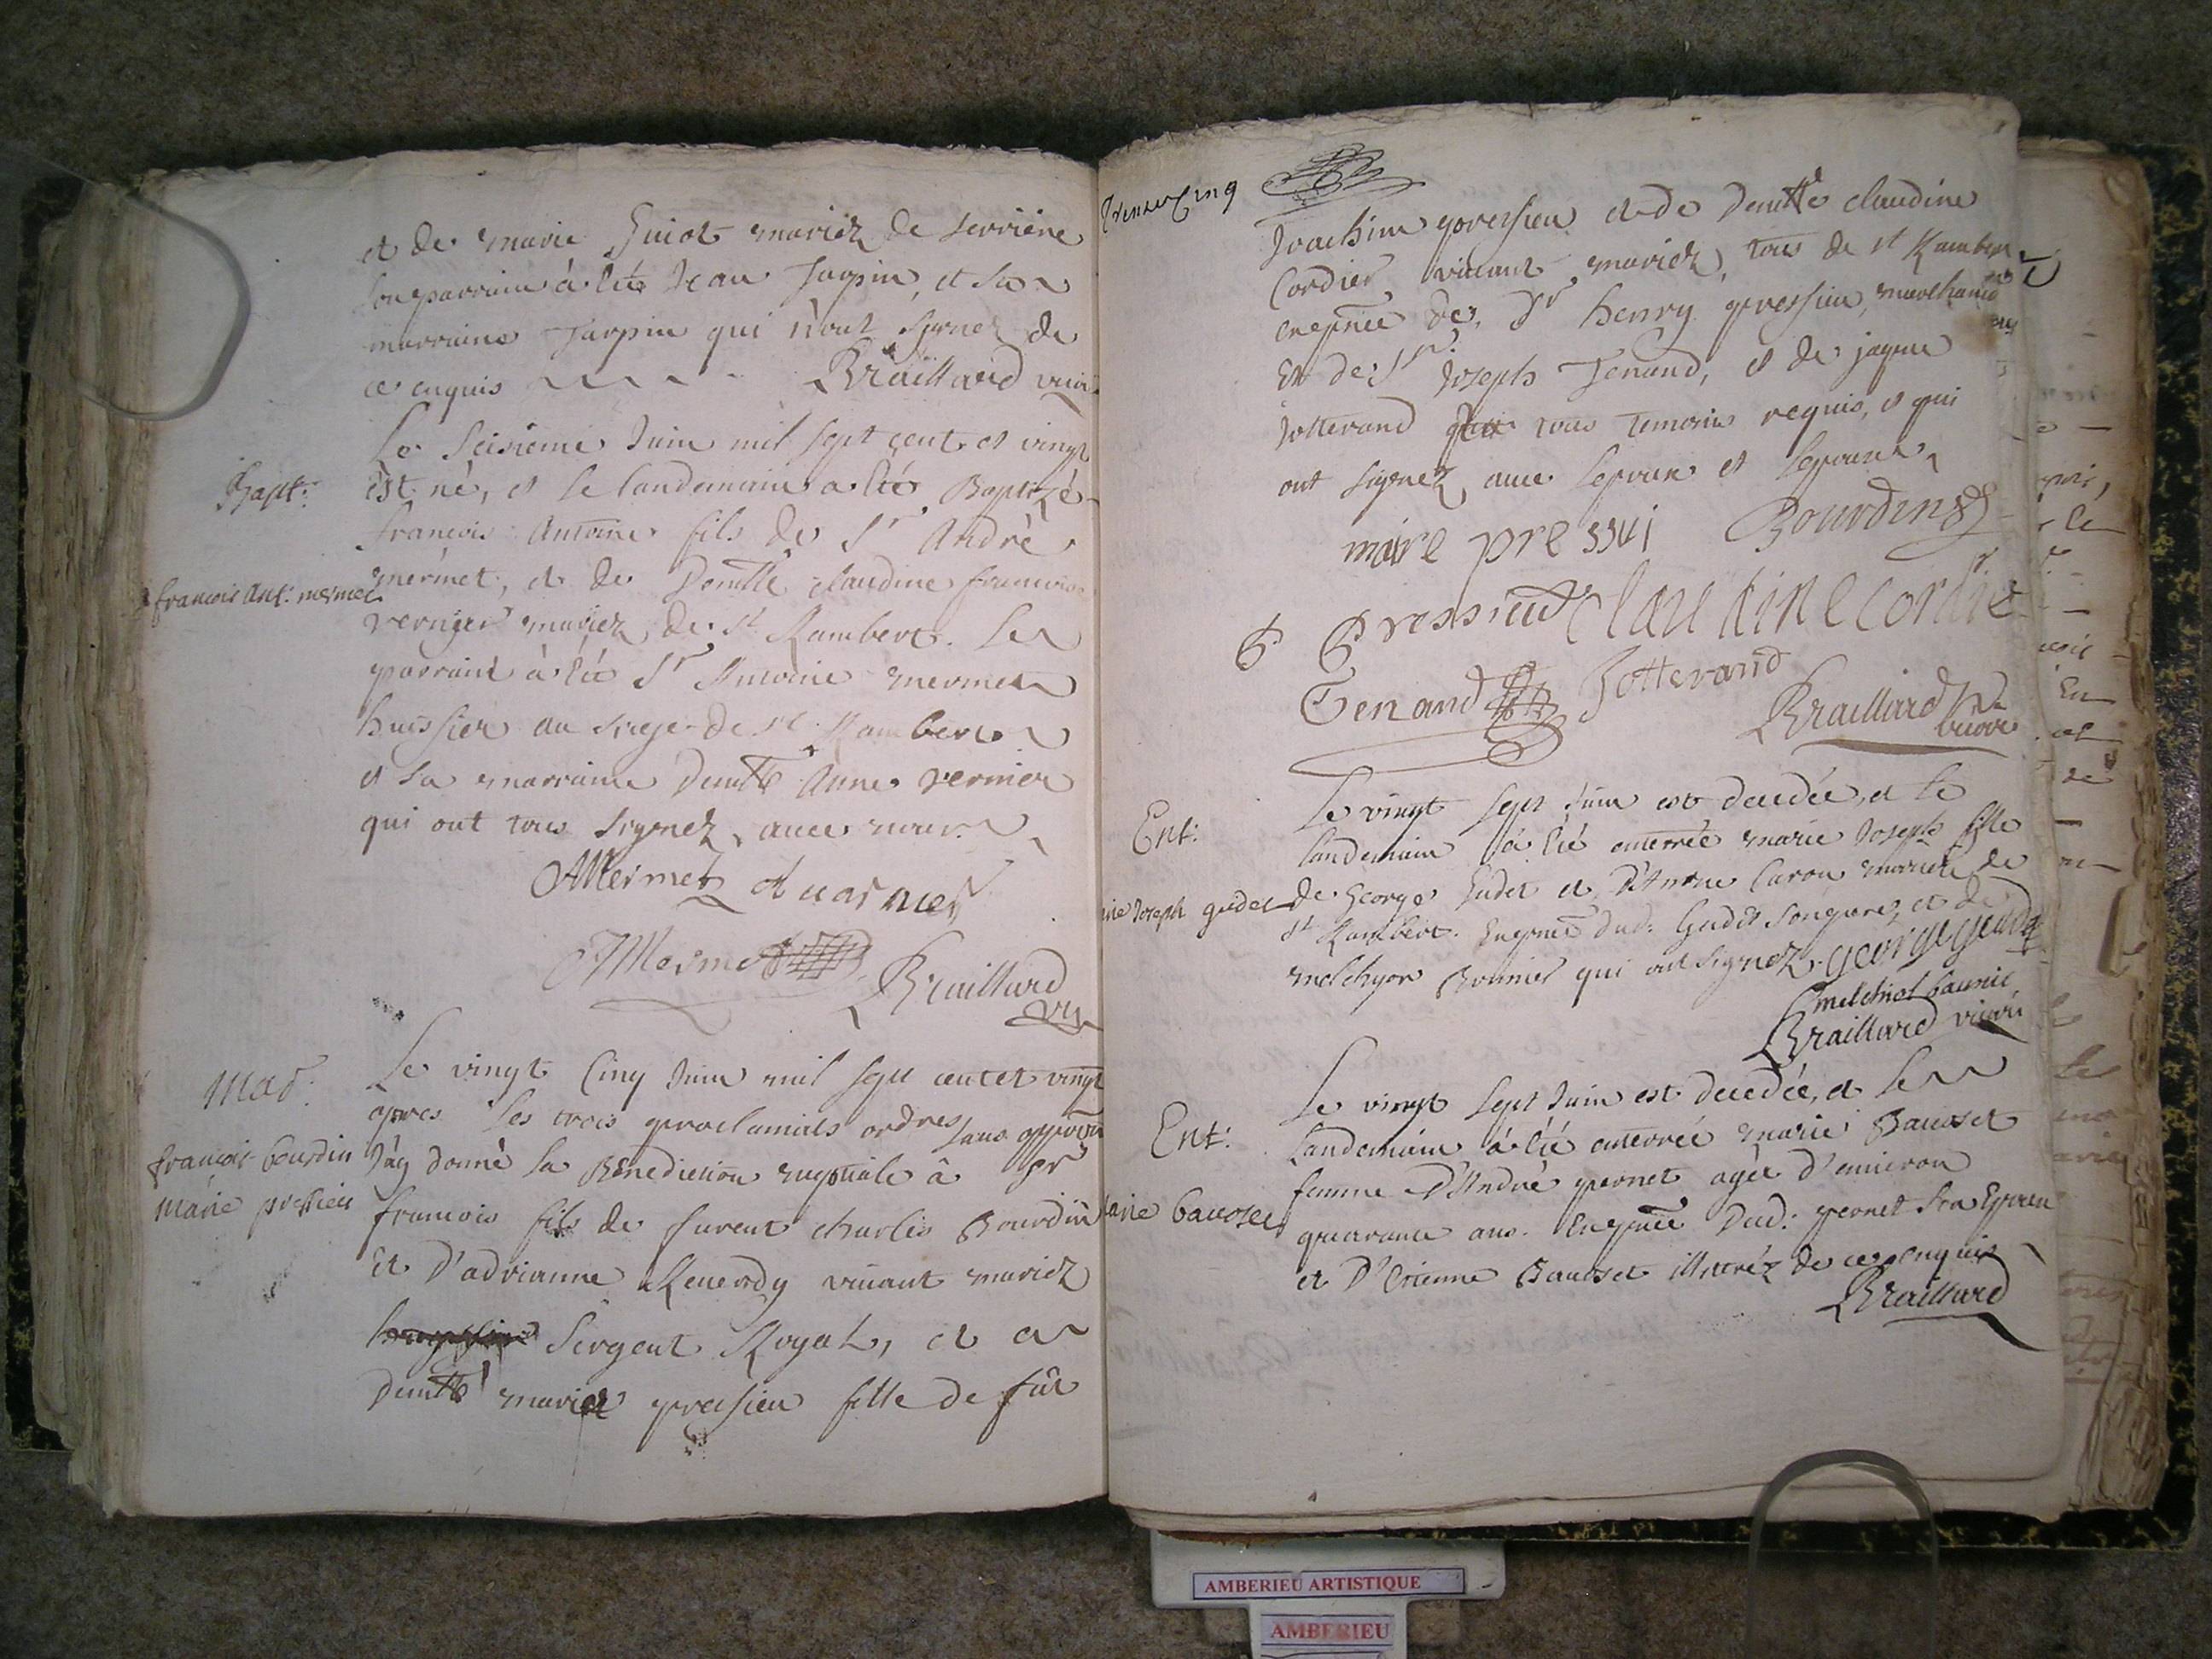 et de marie Guiot mariez de serriere
son parrain à été Jean Jarpin, et sa
marraine Jarpin qui n'ont signez de
ce enquis Braillard vicr.
Bapt:
Le seisiéme Juin mil sept cent et vingt
est né, et le landemain a été Baptizé
francois Antoine fils de Sr André
francois Ant: mermet
mermet, et de Demlle claudine francoise
vernier mariez de st Rambert. Le
parrain à été Sr Antoine mermet
huissier au siege de st Rambert
et sa marraine Demlle Anne vernier
qui ont tous signez avec nous.
AMermet A uarnier
AMermet
Braillard
vicr
Mar:
Le vingt Cinq Juin mil sept cent et vingt
apres les trois proclamats ordres sans opposon
francois bourdin
J'ay donné la Bénediction nuptiale à sr
marie pressieu
francois fils de furent charles Bourdin
Et D'adrianne Reverdy vivant mariez
Sirgent Royal, et a
Demlle marie pressieu fille de fut
trente cinq
Joachim pressieu et de Demlle claudine
Cordier vivant mariez, tous de st Rambert
en epnce de Sr henry pressieu, marchand
Et de Sr Joseph Tenand, et de jaque
Jotterand tous temoins requis, et qui
ont signez avec lepoux et lepouse
marie pressui Bourdin
P Pressieu Claudine cordie
Tenand Jotterand
Braillard
vicaire
Ent:
Le vingt sept Juin est decedée, et le
landemain à été enterrée marie Joseph fille
rie Joseph gudet
de George Gudet et D'Antne Caron mariez de
st Rambert. En epnce dud. Gudet son pere, et de
melchyor Bonnier qui ont signez. george gudet
melchiol baunie
Braillard vicaire
Ent:
Le vingt sept Juin est decedée, et le
landemain à été enterrée marie Bauset
femme D'André pernet agée d'environ
arie bauset
quarante ans. En epnce Dud: pernet son Epoux
et D'Etienne Bauset illiterez de ce enquis
Braillard
AMBERIEU ARTISTIQUE
AMBERIEU